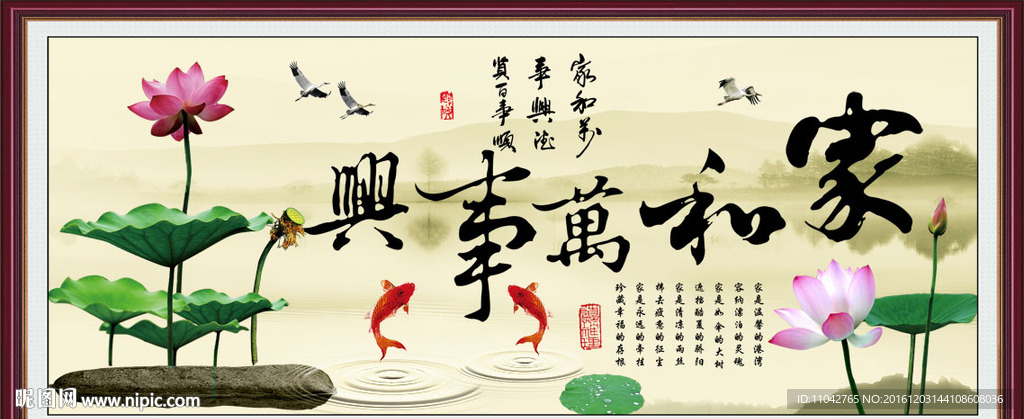 家和萬事興
家和萬
事興德
賢百事順
家是溫馨的港灣
容納漂泊的靈魂
家是如傘的大樹
遮擋酷夏的驕陽
家是清涼的雨絲
拂去疲憊的征塵
家是永遠的牽挂
珍藏幸福的存根
昵图网 www.nipic.com
ID:11042765 NO:20161203144108608036